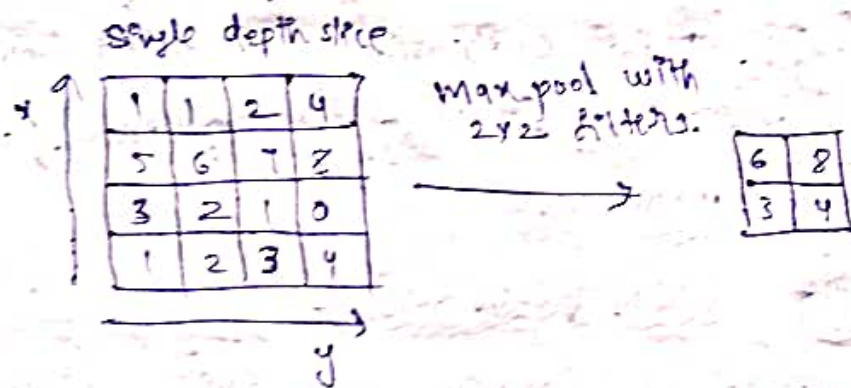 single depth slice
x
1 1 2 4
5 6 7 8
3 2 1 0
1 2 3 4
y
max pool with
2x2 filters.
6 8
3 4